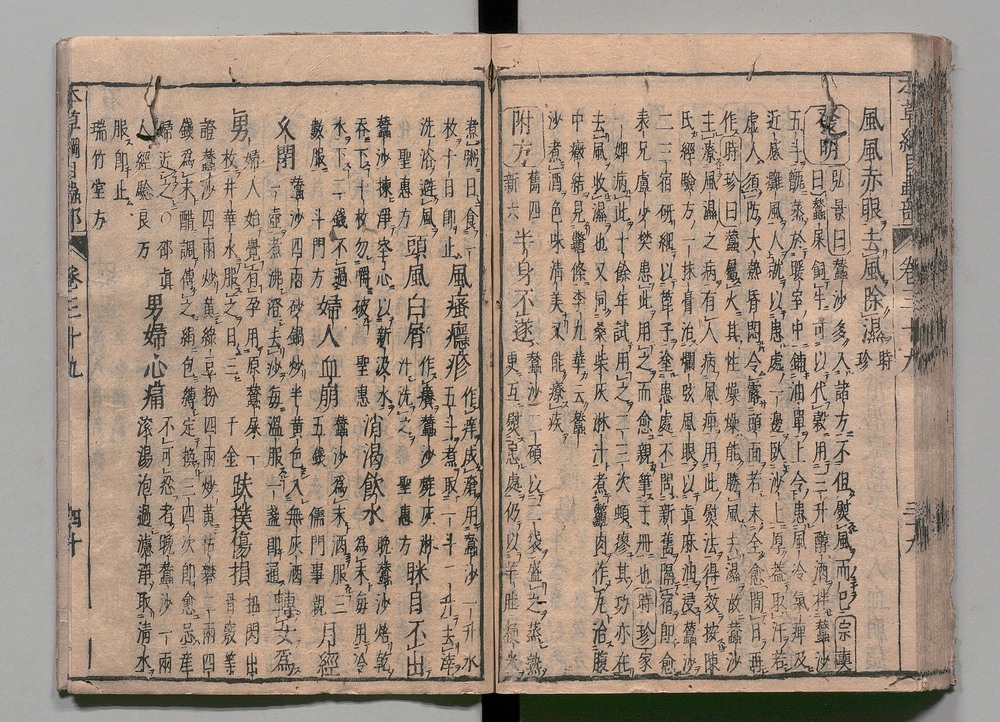 風風赤眼去風除濕時珍
發明弘景曰蠶沙多入諸方不但熨風而已宗奭
曰蠶屎飼牛可以代穀用三升醇酒拌蠶沙
五斗甑蒸於暖室中鋪油單上令患風冷氣痺及
近感癱風人就以患處一邊臥沙上厚蓋取汗若
虛人須防大熱昏悶令露頭面若未全愈間日再
作時珍曰蠶屬火其性燥燥能勝風去濕故蠶沙
主療風濕之病有人病風痺用此熨法得效按陳
氏經驗方一抹膏治爛弦風眼以真麻油浸蠶沙
二三宿研細以篦子塗患處不問新舊隔宿即愈
表兄盧少樊患此用之而愈親筆于冊也時珍家
一婢病此十餘年試用之二三次頓瘳其功亦在
去風收濕也又同桑柴灰淋汁煮鱉肉作丸治腹
中癥結見鱉條李九華云蠶
沙煮酒色味清美又能療疾
附方舊四新六半身不遂蠶沙二碩以二袋盛之蒸熱
更互熨患處仍以羊肚粳米
煮粥日食一
枚十日即止風瘙癮疹作痒成瘡用蠶沙一升水
五斗煮取一斗二升去滓
洗浴避風聖惠方頭風白屑作癢蠶沙燒灰淋汁洗之聖惠方眯目不出
蠶沙揀淨空心以新汲水
吞下十枚勿嚼破聖惠消渴飲水晚蠶沙焙乾為末每用冷
水下二錢不過
數服斗門方婦人血崩蠶沙為末酒服三
五錢儒門事親月經
久閉蠶沙四兩砂鍋炒半黃色入無灰酒
一壺煮沸澄去沙每溫服一盞即通轉女為
男婦人始覺有孕用原蠶屎一
枚井華水服之日三千金跌撲傷損扭閃出
骨竅等
證蠶沙四兩炒黃綠豆粉四兩炒黃枯礬二兩四
錢為末醋調傅之絹包縛定換三四次即愈忌產
婦近之邵真
人經驗良方男婦心痛不可忍者晚蠶沙一兩
滾湯泡過濾淨取清水
服即止
瑞竹堂方
本草綱目蟲部
卷三十九
四十